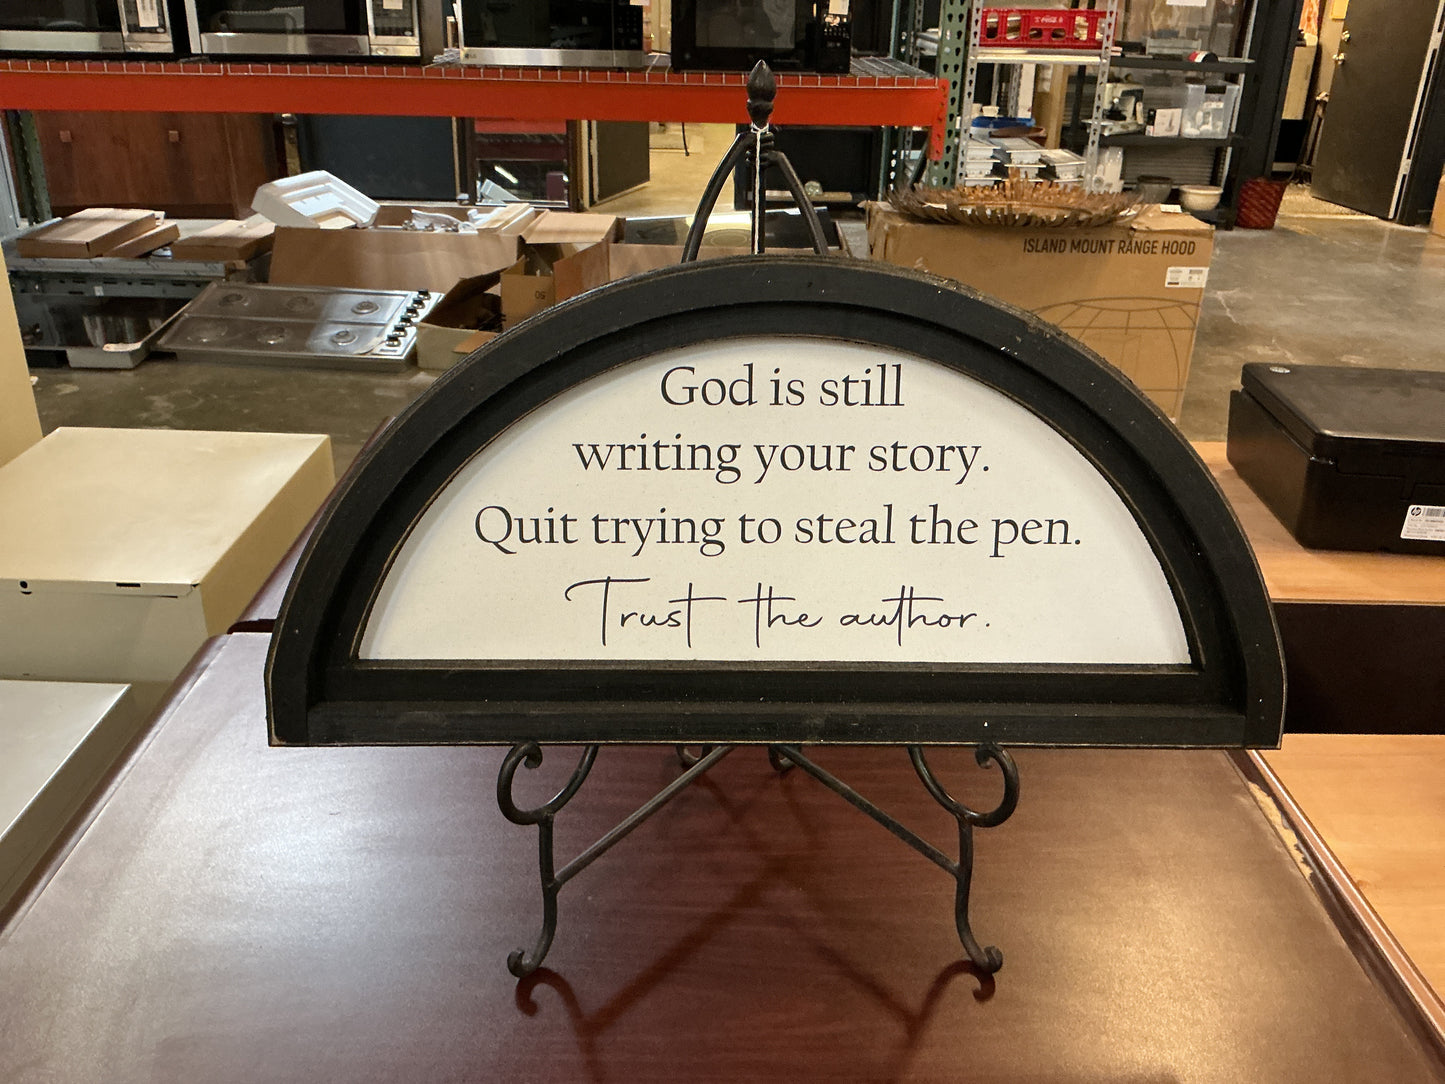 ISLAND MOUNT RANGE HOOD
God is still
writing your story.
Quit trying to steal the pen.
Trust the author.
hp